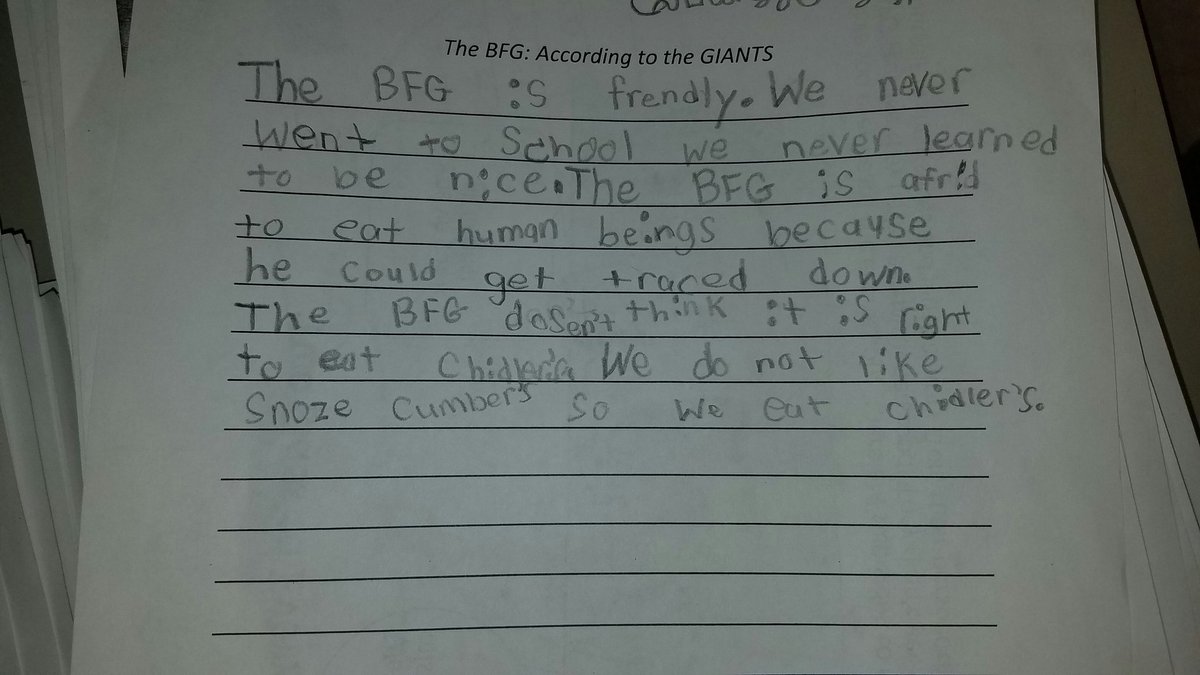 The BFG: According to the GIANTS
The BFG is frendly. We never
went to School we never learned
to be nice. The BFG is afrid
to eat human beings because
he could get traced down.
The BFG dosen't think it is right
to eat We do not like
Snoze Cumber's So We eat chidler's.